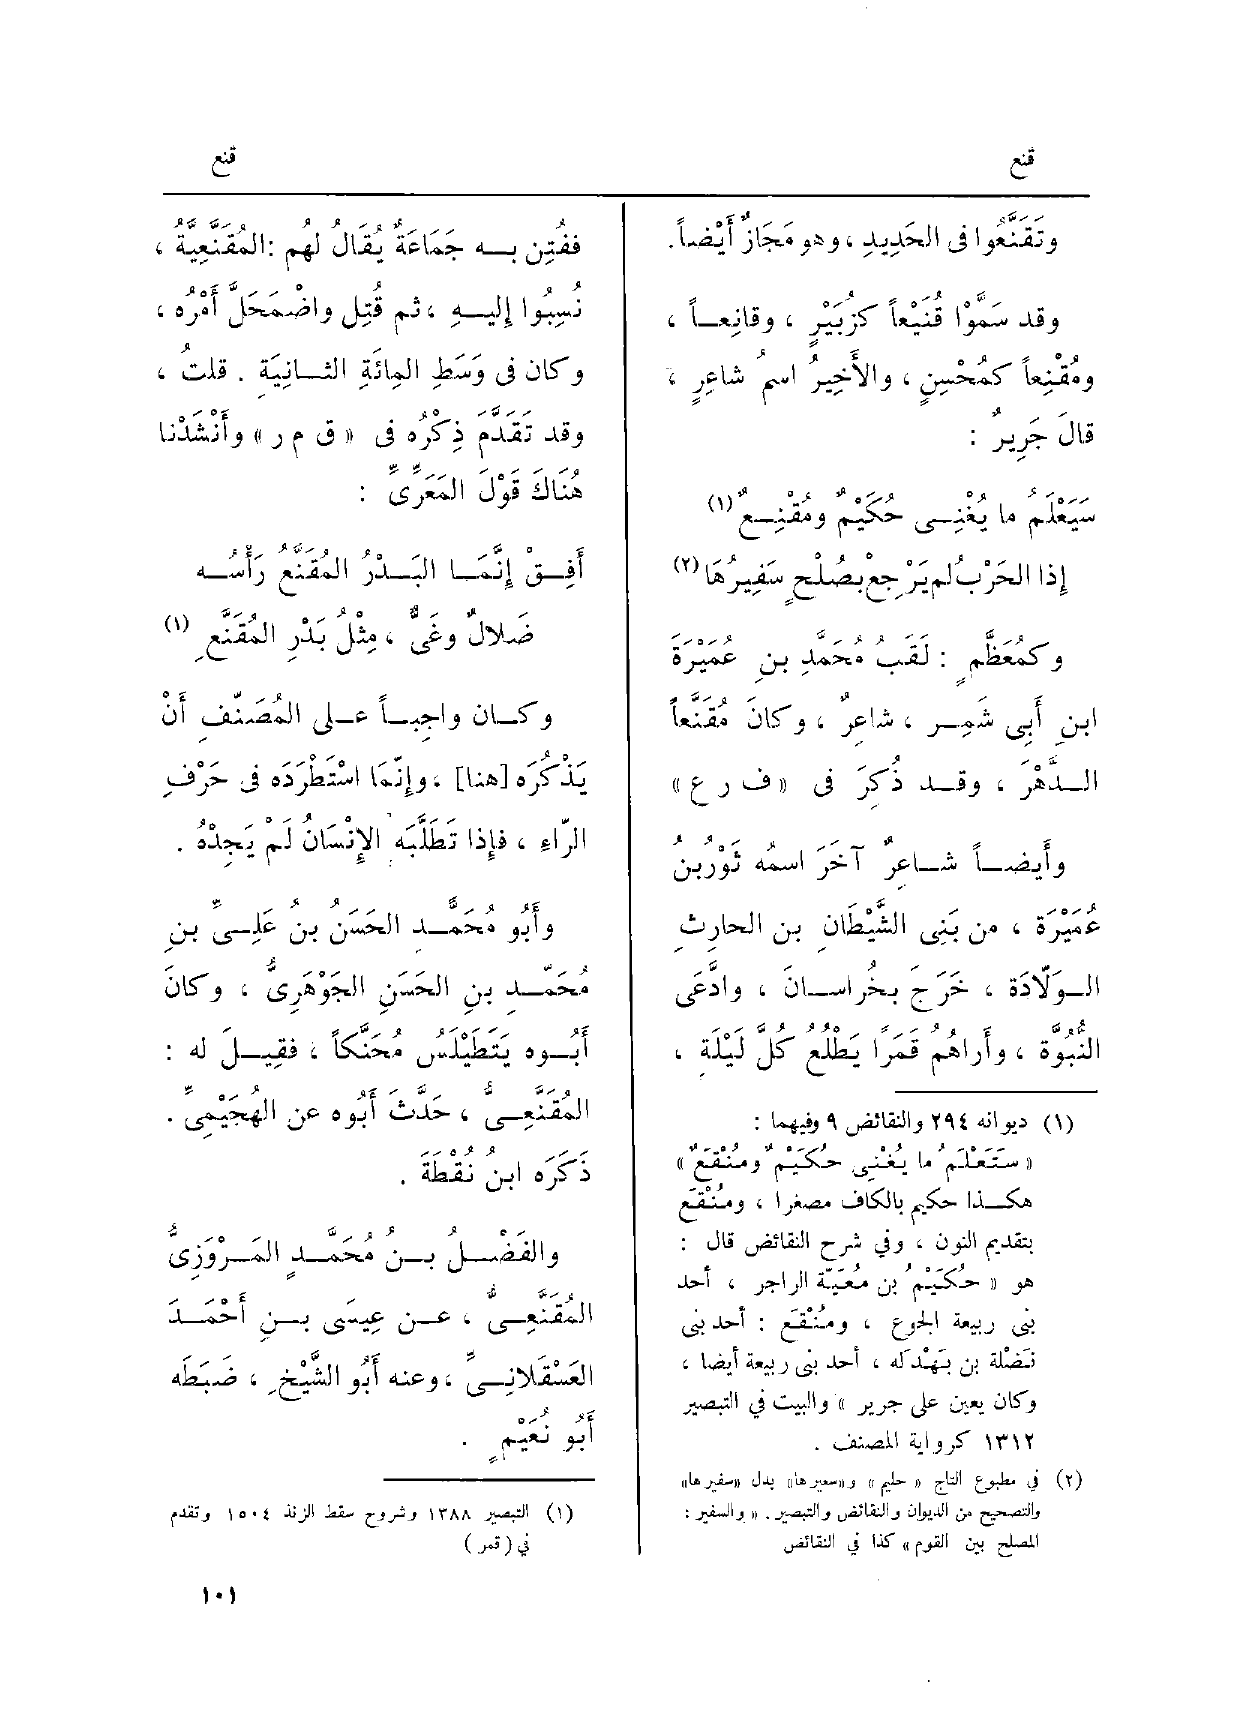 قنع
قنع
وتَقَنَّعُوا فى الحَدِيدِ ، وهو مَجَازٌ أَيْضاً.
وقد سَمَّوْا قُنَيْعاً كزُبَيْرٍ ، وقانِعاً ،
ومُقْنِعاً كمُحْسِنٍ ، والأَخِيرُ اسمُ شاعِرٍ ،
قالَ جَرِيرٌ :
سَيَعْلَمُ ما يُغْنِى حُكَيْمٌ ومُقْنِعٌ (١)
إذا الحَرْبُ لم يَرْجِع بصُلْحٍ سَفِيرُهَا (٢)
وكمُعَظَّمٍ : لَقَبُ مُحَمَّدِ بنِ عُمَيْرَةَ
ابنِ أَبِى شَمِر ، شاعِرٌ ، وكانَ مُقَنَّعاً
الدَّهْرَ ، وقد ذُكِرَ فى «ف ر ع»
وأَيضاً شاعِرٌ آخَرَ اسمُه ثَوْرُبنُ
عُمَيْرَةَ ، من بَنِى الشَّيْطَانِ بن الحارِثِ
الوَلّادَة ، خَرَجَ بخُراسانَ ، وادَّعَى
النُّبُوَّةَ ، وأَراهُم قَمَرًا يَطْلُعُ كُلَّ لَيْلَةٍ ،
(١) ديوانه ٢٩٤ والنقائض ٩ وفيهما :
« سَتَعْلَمُ ما يُغْنِى حُكَيْمٌ ومُنْقَعٌ »
هكذا حكيم بالكاف مصغرا ، ومُنْقَع
بتقديم النون ، وفي شرح النقائض قال :
هو « حُكَيْمُ بن مُعَيَّة الراجز ، أحد
بنى ربيعة الجوع ، ومُنْقَع : أحد بنى
نَضْلة بن بَهْدله ، أحد بنى ربيعة أيضا ،
وكان يعين على جرير » والبيت في التبصير
١٣١٢ كرواية المصنف .
(٢) في مطبوع التاج « حليم » و«سعيرها» بدل «سفيرها»
والتصحيح من الديوان والنقائض والتبصير. « والسفير :
المصلح بين القوم » كذا في النقائض
ففُتِن به جَمَاعَةٌ يُقَالُ لهم :المُقَنَّعِيَّةُ ،
نُسِبُوا إليهِ ، ثم قُتِل واضْمَحَلَّ أَمْرُه ،
وكان فى وَسَطِ المِائَةِ الثانِيَةِ . قلتُ ،
وقد تَقَدَّمَ ذِكْرُه فى « ق م ر » وأَنْشَدْنا
هُنَاكَ قَوْلَ المَعَرِّىِّ :
أَفِقْ إِنَّمَا البَدْرُ المُقَنَّعُ رَأْسُه
ضَلالٌ وغَىٌّ ، مِثْلُ بَدْرِ المُقَنَّعِ (١)
وكان واجِباً على المُصَنِّفِ أَنْ
يَذْكُرَه [هنا] ، وإنّمَا اسْتَطْرَدَه فى حَرْفِ
الرّاءِ ، فإذا تَطَلَّبَه الإنْسَانُ لَمْ يَجِدْهُ .
وأَبُو مُحَمَّد الحَسَنُ بنُ عَلِىِّ بنِ
مُحَمَّد بنِ الحَسَنِ الجَوْهَرِىُّ ، وكانَ
أَبُوه يَتَطَيْلَسُ مُحَنَّكاً ، فقِيلَ له :
المُقَنَّعِىُّ ، حَدَّثَ أَبُوه عن الهُجَيْمِىِّ .
ذَكَرَه ابنُ نُقْطَةَ .
والفَضْلُ بنُ مُحَمَّدٍ المَرْوَزِىُّ
المُقَنَّعِىُّ ، عن عِيسَى بنِ أَحْمَدَ
العَسْقَلانِىِّ ، وعنه أَبُو الشَّيْخِ ، ضَبَطَه
أَبُو نُعَيْمٍ .
(١) التبصير ١٣٨٨ وشروح سقط الزند ١٥٠٤ وتقدم
في ( قمر )
١٠١